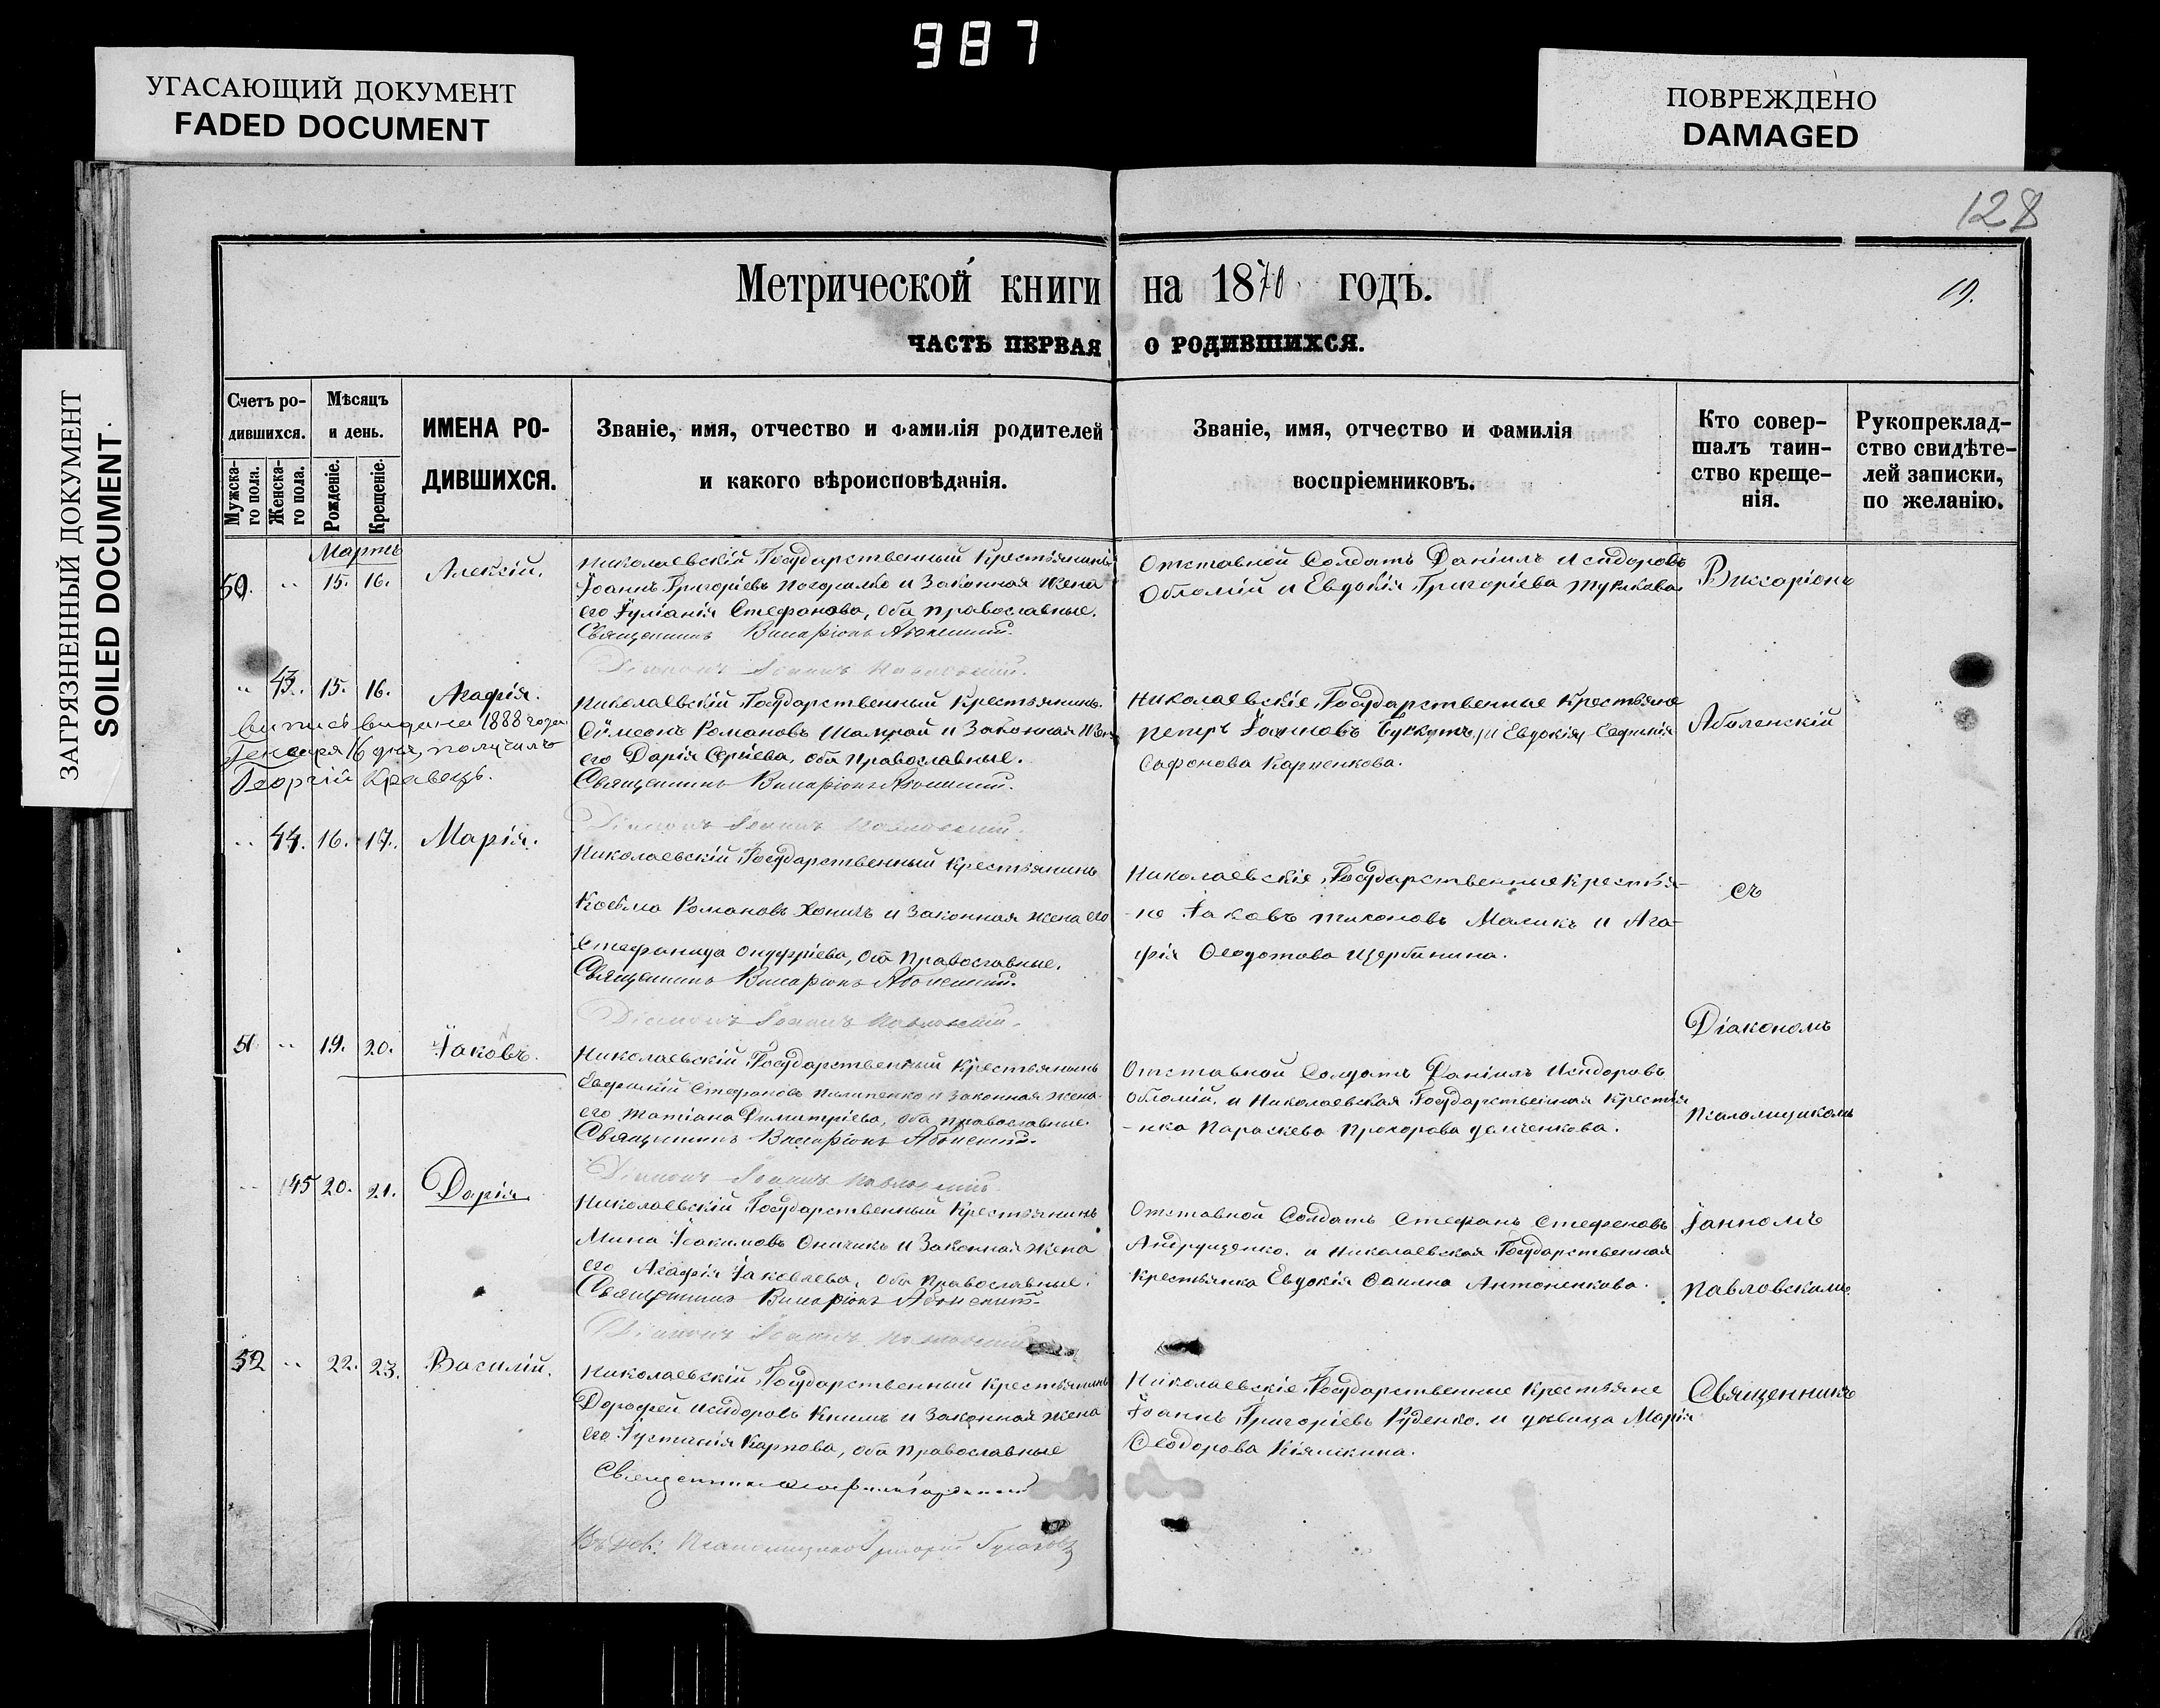 987
УГАСАЮЩИЙ ДОКУМЕНТ
FADED DOCUMENT
ПОВРЕЖДЕНО
DAMAGED
ЗАГРЯЗНЕННЫЙ ДОКУМЕНТ
SOILED DOCUMENT
128
Метрической книги на 1870 годъ.
19.
ЧАСТЬ ПЕРВАЯ О РОДИВШИХСЯ.
Счетъ ро-
дившихся.
Мужска-
го пола.
Женска-
го пола.
Мѣсяцъ
и день.
Рожденіе.
Крещеніе.
ИМЕНА РО-
ДИВШИХСЯ.
Званіе, имя, отчество и фамилія родителей
и какого вѣроисповѣданія.
Званіе, имя, отчество и фамилія
воспріемниковъ.
Кто совер-
шалъ таин-
ство креще-
нія.
Рукопреклад-
ство свидѣте-
лей записки,
по желанію.
Мартъ
50. " 15. 16. Алексій.
Николаевскій Государственный Крестьянинъ
Іоаннъ Григоріевъ и Законная Жена
его Іуліанія Стефанова, оба православные.
Священникъ Виссаріонъ Аболенскій.
Діаконъ Іоаннъ Павловскій.
Отставной Солдатъ Даніилъ Исидоровъ
Обломій и Евдокія Григоріева
Виссаріонъ
" 43. 15. 16. Агафія.
выпись выдана 1888 года
Генваря 16 дня, получилъ
Георгій Кравецъ.
Николаевскій Государственный Крестьянинъ
Сѵмеонъ Романовъ и Законная Жена
его Дарія Сергіева, оба православные.
Священникъ Виссаріонъ Аболенскій.
Діаконъ Іоаннъ Павловскій.
Николаевскіе Государственные Крестьяне
Петръ Іоанновъ и Евдокія
Сафонова Карпенкова.
Аболенскій
" 44. 16. 17. Марія.
Николаевскій Государственный Крестьянинъ
Косьма Романовъ и Законная жена его
Стефанида Онуфріева, оба православные.
Священникъ Виссаріонъ Аболенскій.
Діаконъ Іоаннъ Павловскій.
Николаевскіе Государственные Крестья-
не Іаковъ Тихоновъ Маликъ и Ага-
фія Ѳеодотова Щербинина.
съ
51. " 19. 20. Іаковъ.
Николаевскій Государственный Крестьянинъ
Евфимій Стефановъ Пилипенко и Законная жена
его Татіана Димитріева, оба православные.
Священникъ Виссаріонъ Аболенскій.
Діаконъ Іоаннъ Павловскій.
Отставной Солдатъ Даніилъ Исидоровъ
Обломій, и Николаевская Государственная Крестья
-нка Параскева Прохорова
Діакономъ
Псаломщикомъ
" 45 20. 21. Дарія
Николаевскій Государственный Крестьянинъ
Мина Іоакимовъ и Законная жена
его Агафія Іаковлева, оба православные.
Священникъ Виссаріонъ Аболенскій.
Діаконъ Іоаннъ Павловскій
Отставной Солдатъ Стефанъ Стефановъ
Андрущенко. и Николаевская Государственная
Крестьянка Евдокія Антоненкова.
Іанномъ
Павловскимъ.
52 " 22. 23. Василій.
Николаевскій Государственный Крестьянинъ
Дорофей Исидоровъ и Законная жена
его Іустинія Карпова, оба православные
Священникъ
Николаевскіе Государственные Крестьяне
Іоаннъ Григоріевъ Руденко. и дѣвица Марія
Ѳеодорова
Священникъ
Псаломщикъ Григорій